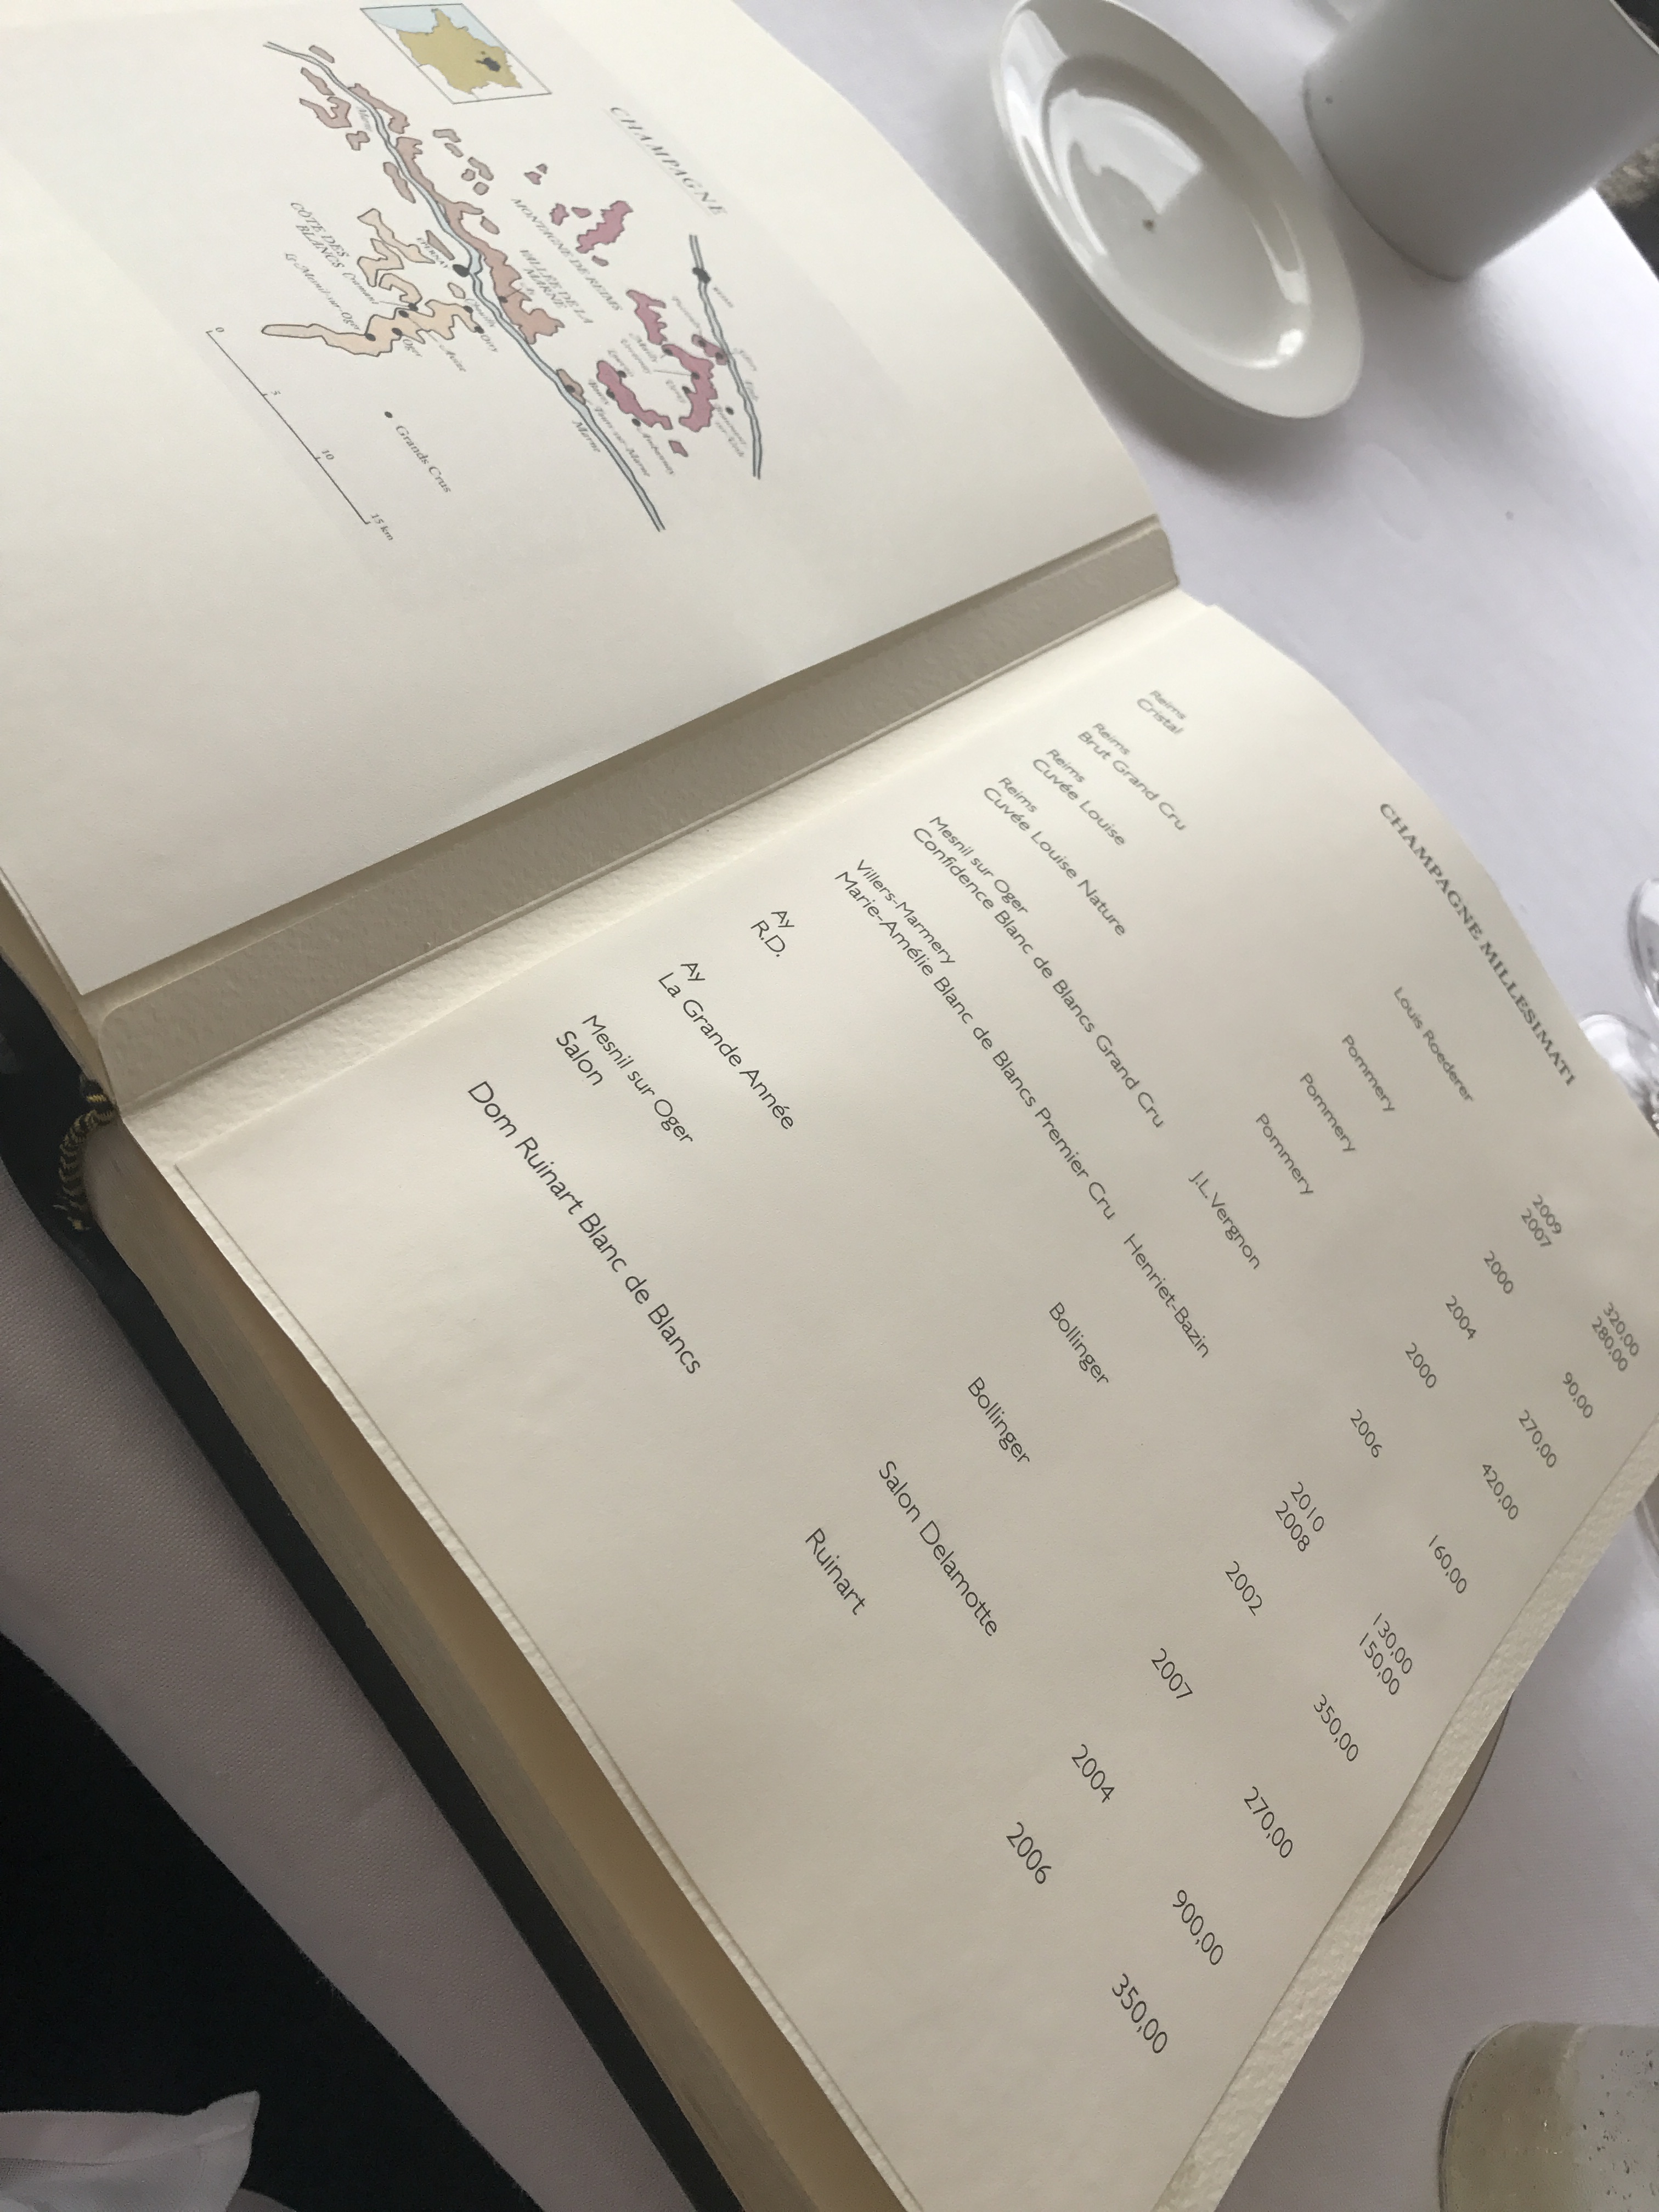 CHAMPAGNE
MONTAGNE DE REIMS
VALLÉE DE LA
MARNE
CÔTE DES
BLANCS
Cramant
Le Mesnil-sur-Oger
Oger
Avize
Oiry
Marne
Grands Crus
0 5 10 15 km
CHAMPAGNE MILLESIMATI
Reims
Cristal Louis Roederer 2009 320,00
2007 280,00
Reims
Brut Grand Cru Pommery 2000 90,00
Reims
Cuvée Louise Pommery 2004 270,00
Reims
Cuvée Louise Nature Pommery 2000 420,00
Mesnil sur Oger
Confidence Blanc de Blancs Grand Cru J.L.Vergnon 2006 160,00
Villers-Marmery
Marie-Amélie Blanc de Blancs Premier Cru Henriet-Bazin 2010 130,00
2008 150,00
Ay
R.D. Bollinger 2002 350,00
Ay
La Grande Année Bollinger 2007 270,00
Mesnil sur Oger
Salon Salon Delamotte 2004 900,00
Dom Ruinart Blanc de Blancs Ruinart 2006 350,00